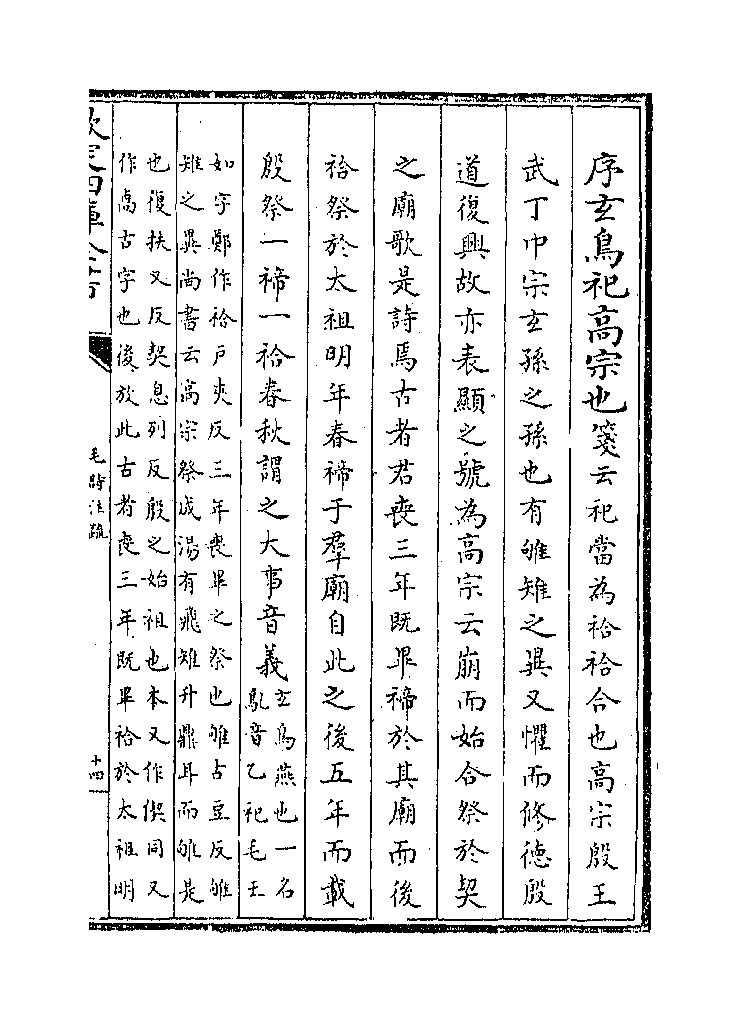 序玄鳥祀高宗也箋云祀當為祫祫合也高宗殷王
武丁中宗玄孫之孫也有雊雉之異又懼而修德殷
道復興故亦表顯之號為高宗云崩而始合祭於契
之廟歌是詩焉古者君喪三年既畢禘於其廟而後
祫祭於太祖明年春禘于羣廟自此之後五年而載
殷祭一禘一祫春秋謂之大事音義玄鳥燕也一名
鳦音乙祀毛王
如字鄭作祫戶夾反三年喪畢之祭也雊古豆反雊
雉之異尚書云高宗祭成湯有飛雉升鼎耳而雊是
也復扶又反契息列反殷之始祖也本又作偰同又
作卨古字也後放此古者喪三年既畢祫於太祖明
欽定四庫全書
毛詩注疏
十四